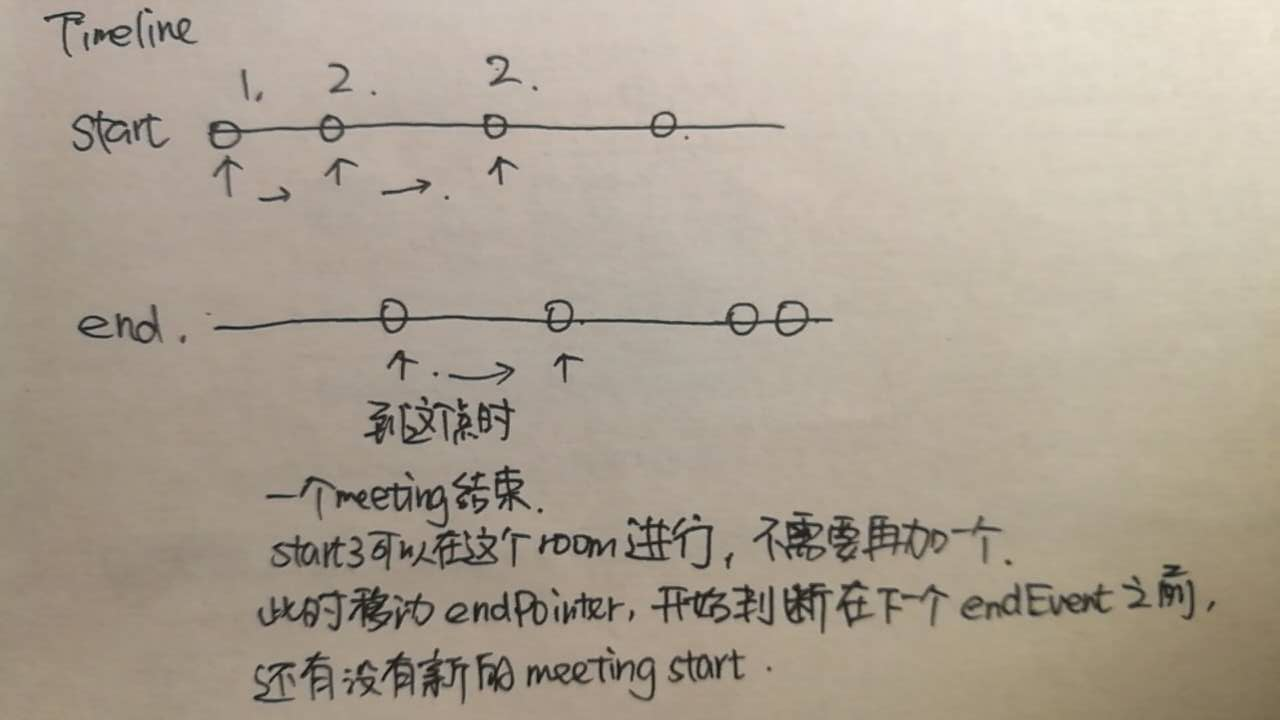 Timeline
1. 2. 2.
start
end.
到这个点时
一个meeting结束.
start3可以在这个room进行，不需要再加一个.
此时移动endPointer，开始判断在下一个endEvent之前，
还有没有新的meeting start.